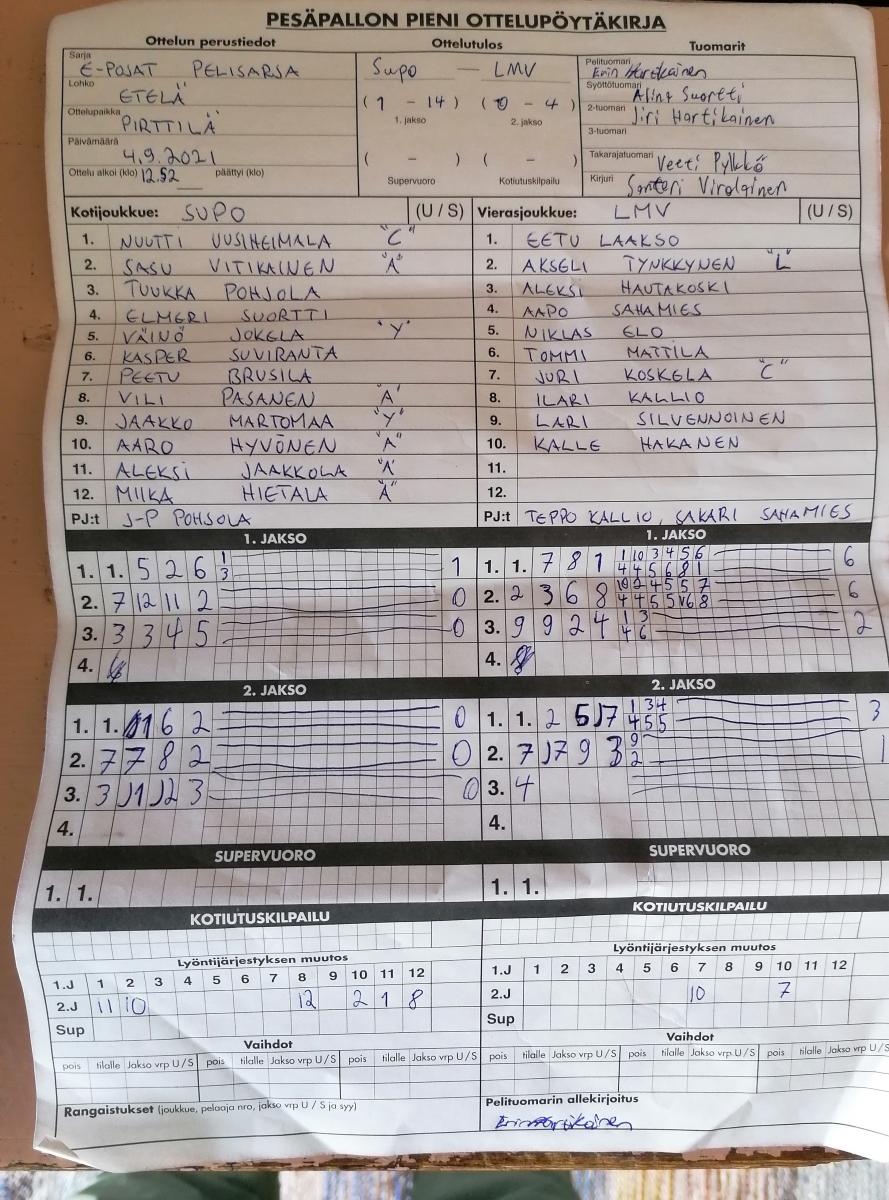 PESÄPALLON PIENI OTTELUPÖYTÄKIRJA
Ottelun perustiedot Ottelutulos Tuomarit
Sarja
E-POJAT PELISARJA
Lohko
ETELÄ
Ottelupaikka
PIRTTILÄ
Päivämäärä
4.9.2021
Ottelu alkoi (klo) 12.52 päättyi (klo)
Supo — LMV
(1 - 14) (0 - 4)
1. jakso 2. jakso
( - ) ( - )
Supervuoro Kotiutuskilpailu
Pelituomari
Erin Hartikainen
Syöttötuomari Alina Suortti
2-tuomari Jiri Hartikainen
3-tuomari
Takarajatuomari Veeti Pylkkö
Kirjuri Santeri Virolainen
Kotijoukkue: SUPO (U / S)
1. NUUTTI UUSIHEIMALA "C"
2. SASU VITIKAINEN "A"
3. TUUKKA POHJOLA
4. ELMERI SUORTTI
5. VÄINÖ JOKELA "Y"
6. KASPER SUVIRANTA
7. PEETU BRUSILA
8. VILI PASANEN "A"
9. JAAKKO MARTOMAA "Y"
10. AARO HYVÖNEN "A"
11. ALEKSI JAAKKOLA "A"
12. MIIKA HIETALA "A"
PJ:t J-P POHJOLA
Vierasjoukkue: LMV (U / S)
1. EETU LAAKSO
2. AKSELI TYNKKYNEN "L"
3. ALEKSI HAUTAKOSKI
4. AAPO SAHAMIES
5. NIKLAS ELO
6. TOMMI MATTILA
7. JURI KOSKELA "C"
8. ILARI KALLIO
9. LARI SILVENNOINEN
10. KALLE HAKANEN
11.
12.
PJ:t TEPPO KALLIO, SAKARI SAHAMIES
1. JAKSO
1. 1. 5 2 6 1 3 1
2. 7 12 11 2 0
3. 3 3 4 5 0
4.
1. JAKSO
1. 1. 7 8 1 1 10 3 4 5 6 6
4 4 5 6 8 1
2. 2 3 6 8 10 2 4 5 5 7 6
4 4 5 5 6 8
3. 9 9 2 4 1 3 2
4 6
4. 8
2. JAKSO
1. 1. 6 2 0
2. 7 7 8 2 0
3. 3 J1 J2 3 0
4.
2. JAKSO
1. 1. 2 5 J7 1 3 4 3
4 5 5
2. 7 J7 9 3 9 1
2
3. 4
4.
SUPERVUORO
1. 1.
SUPERVUORO
1. 1.
KOTIUTUSKILPAILU
Lyöntijärjestyksen muutos
1.J 1 2 3 4 5 6 7 8 9 10 11 12
2.J 11 10 12 2 1 8
Sup
Vaihdot
pois tilalle Jakso vrp U / S pois tilalle Jakso vrp U / S pois tilalle Jakso vrp U / S
Rangaistukset (joukkue, pelaaja nro, jakso vrp U / S ja syy)
KOTIUTUSKILPAILU
Lyöntijärjestyksen muutos
1.J 1 2 3 4 5 6 7 8 9 10 11 12
2.J 10 7
Sup
Vaihdot
pois tilalle Jakso vrp U / S pois tilalle Jakso vrp U / S pois tilalle Jakso vrp U / S
Pelituomarin allekirjoitus